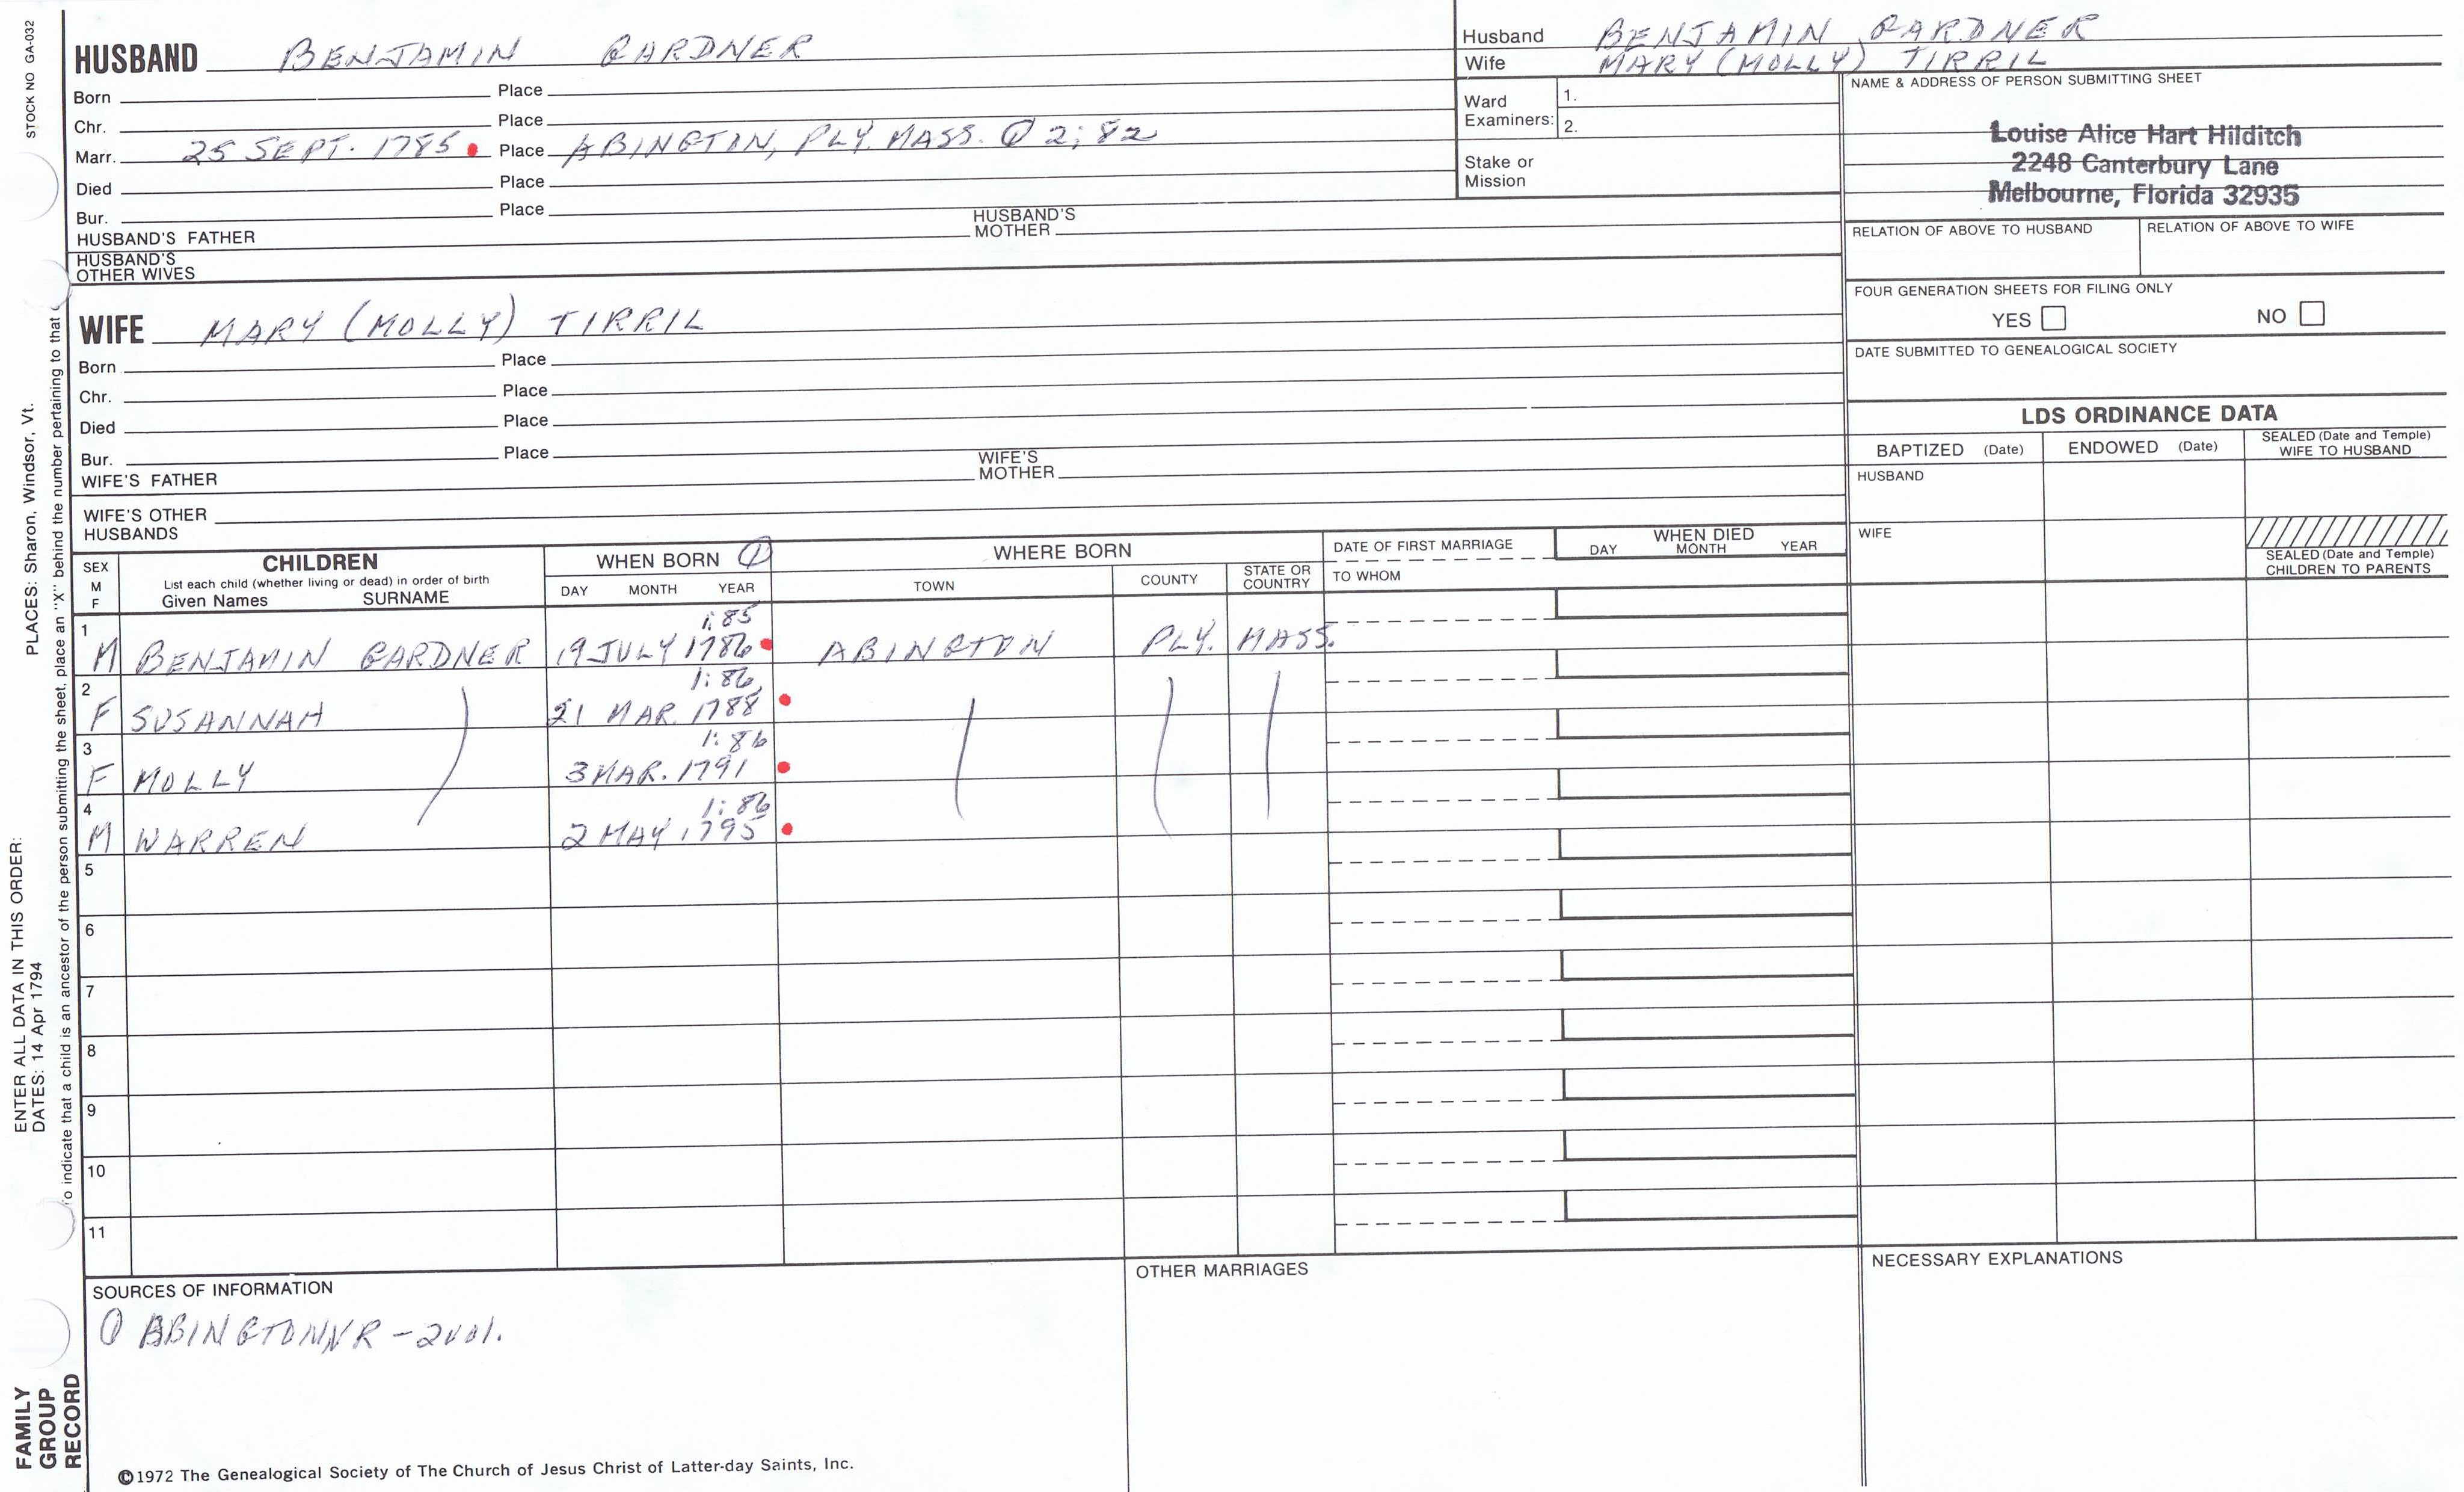 STOCK NO GA-032
HUSBAND BENJAMIN GARDNER
Born Place
Chr. Place
Marr. 25 SEPT. 1785 Place ABINGTON, PLY. MASS. ① 2:82
Died Place
Bur. Place
HUSBAND'S FATHER HUSBAND'S MOTHER
HUSBAND'S OTHER WIVES
Husband BENJAMIN GARDNER
Wife MARY (MOLLY) TIRRIL
Ward Examiners: 1.
2.
Stake or Mission
NAME & ADDRESS OF PERSON SUBMITTING SHEET
Louise Alice Hart Hilditch
2248 Canterbury Lane
Melbourne, Florida 32935
RELATION OF ABOVE TO HUSBAND RELATION OF ABOVE TO WIFE
FOUR GENERATION SHEETS FOR FILING ONLY
YES NO
DATE SUBMITTED TO GENEALOGICAL SOCIETY
WIFE MARY (MOLLY) TIRRIL
Born Place
Chr. Place
Died Place
Bur. Place
WIFE'S FATHER WIFE'S MOTHER
WIFE'S OTHER HUSBANDS
LDS ORDINANCE DATA
BAPTIZED (Date) ENDOWED (Date) SEALED (Date and Temple) WIFE TO HUSBAND
HUSBAND
WIFE
SEALED (Date and Temple) CHILDREN TO PARENTS
SEX M F
CHILDREN
List each child (whether living or dead) in order of birth
Given Names SURNAME
WHEN BORN ①
DAY MONTH YEAR
WHERE BORN
TOWN COUNTY STATE OR COUNTRY
DATE OF FIRST MARRIAGE
TO WHOM
WHEN DIED
DAY MONTH YEAR
1:85
1 M BENJAMIN GARDNER 19 JULY 1786 ABINGTON PLY. MASS.
1:86
2 F SUSANNAH 21 MAR. 1788
1:86
3 F MOLLY 3 MAR. 1791
1:86
4 M WARREN 2 MAY 1795
5
6
7
8
9
10
11
SOURCES OF INFORMATION
① ABINGTON VR - 2 vol.
OTHER MARRIAGES
NECESSARY EXPLANATIONS
©1972 The Genealogical Society of The Church of Jesus Christ of Latter-day Saints, Inc.
FAMILY GROUP RECORD
ENTER ALL DATA IN THIS ORDER:
DATES: 14 Apr 1794
PLACES: Sharon, Windsor, Vt.
o indicate that a child is an ancestor of the person submitting the sheet, place an "X" behind the number pertaining to that